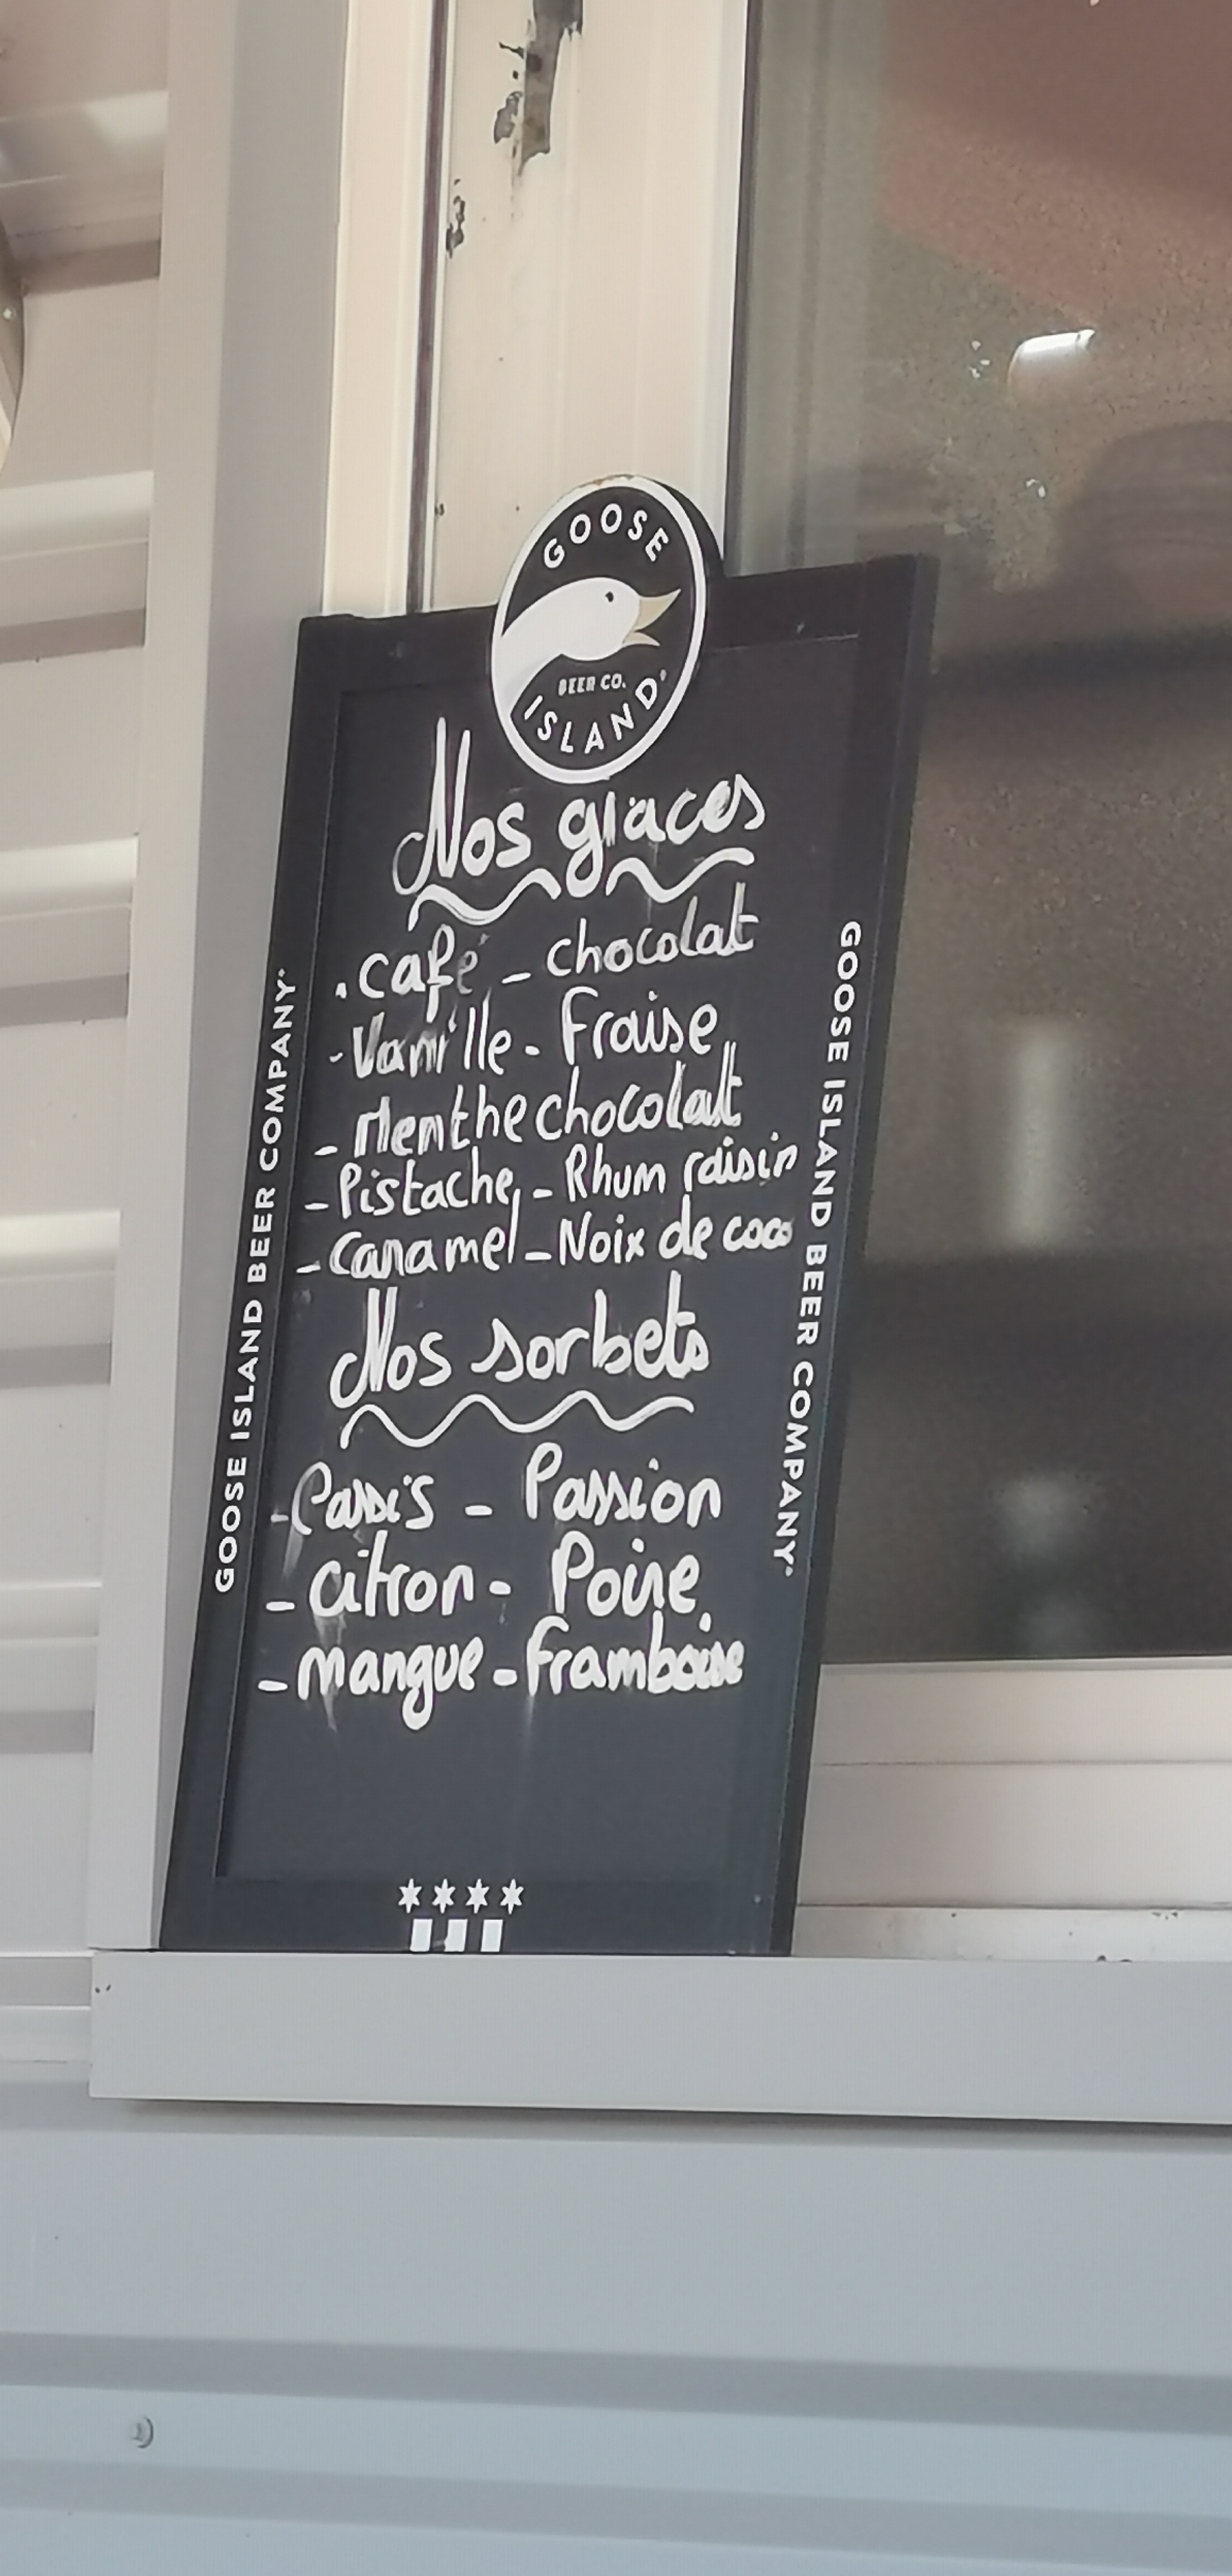 GOOSE
BEER CO.
ISLAND
Nos glaces
. Café - chocolat
- Vanille - Fraise
- Menthe chocolat
- Pistache - Rhum raisin
- Caramel - Noix de coco
Nos sorbets
- Cassis - Passion
- citron - Poire
- mangue - framboise
GOOSE ISLAND BEER COMPANY
GOOSE ISLAND BEER COMPANY